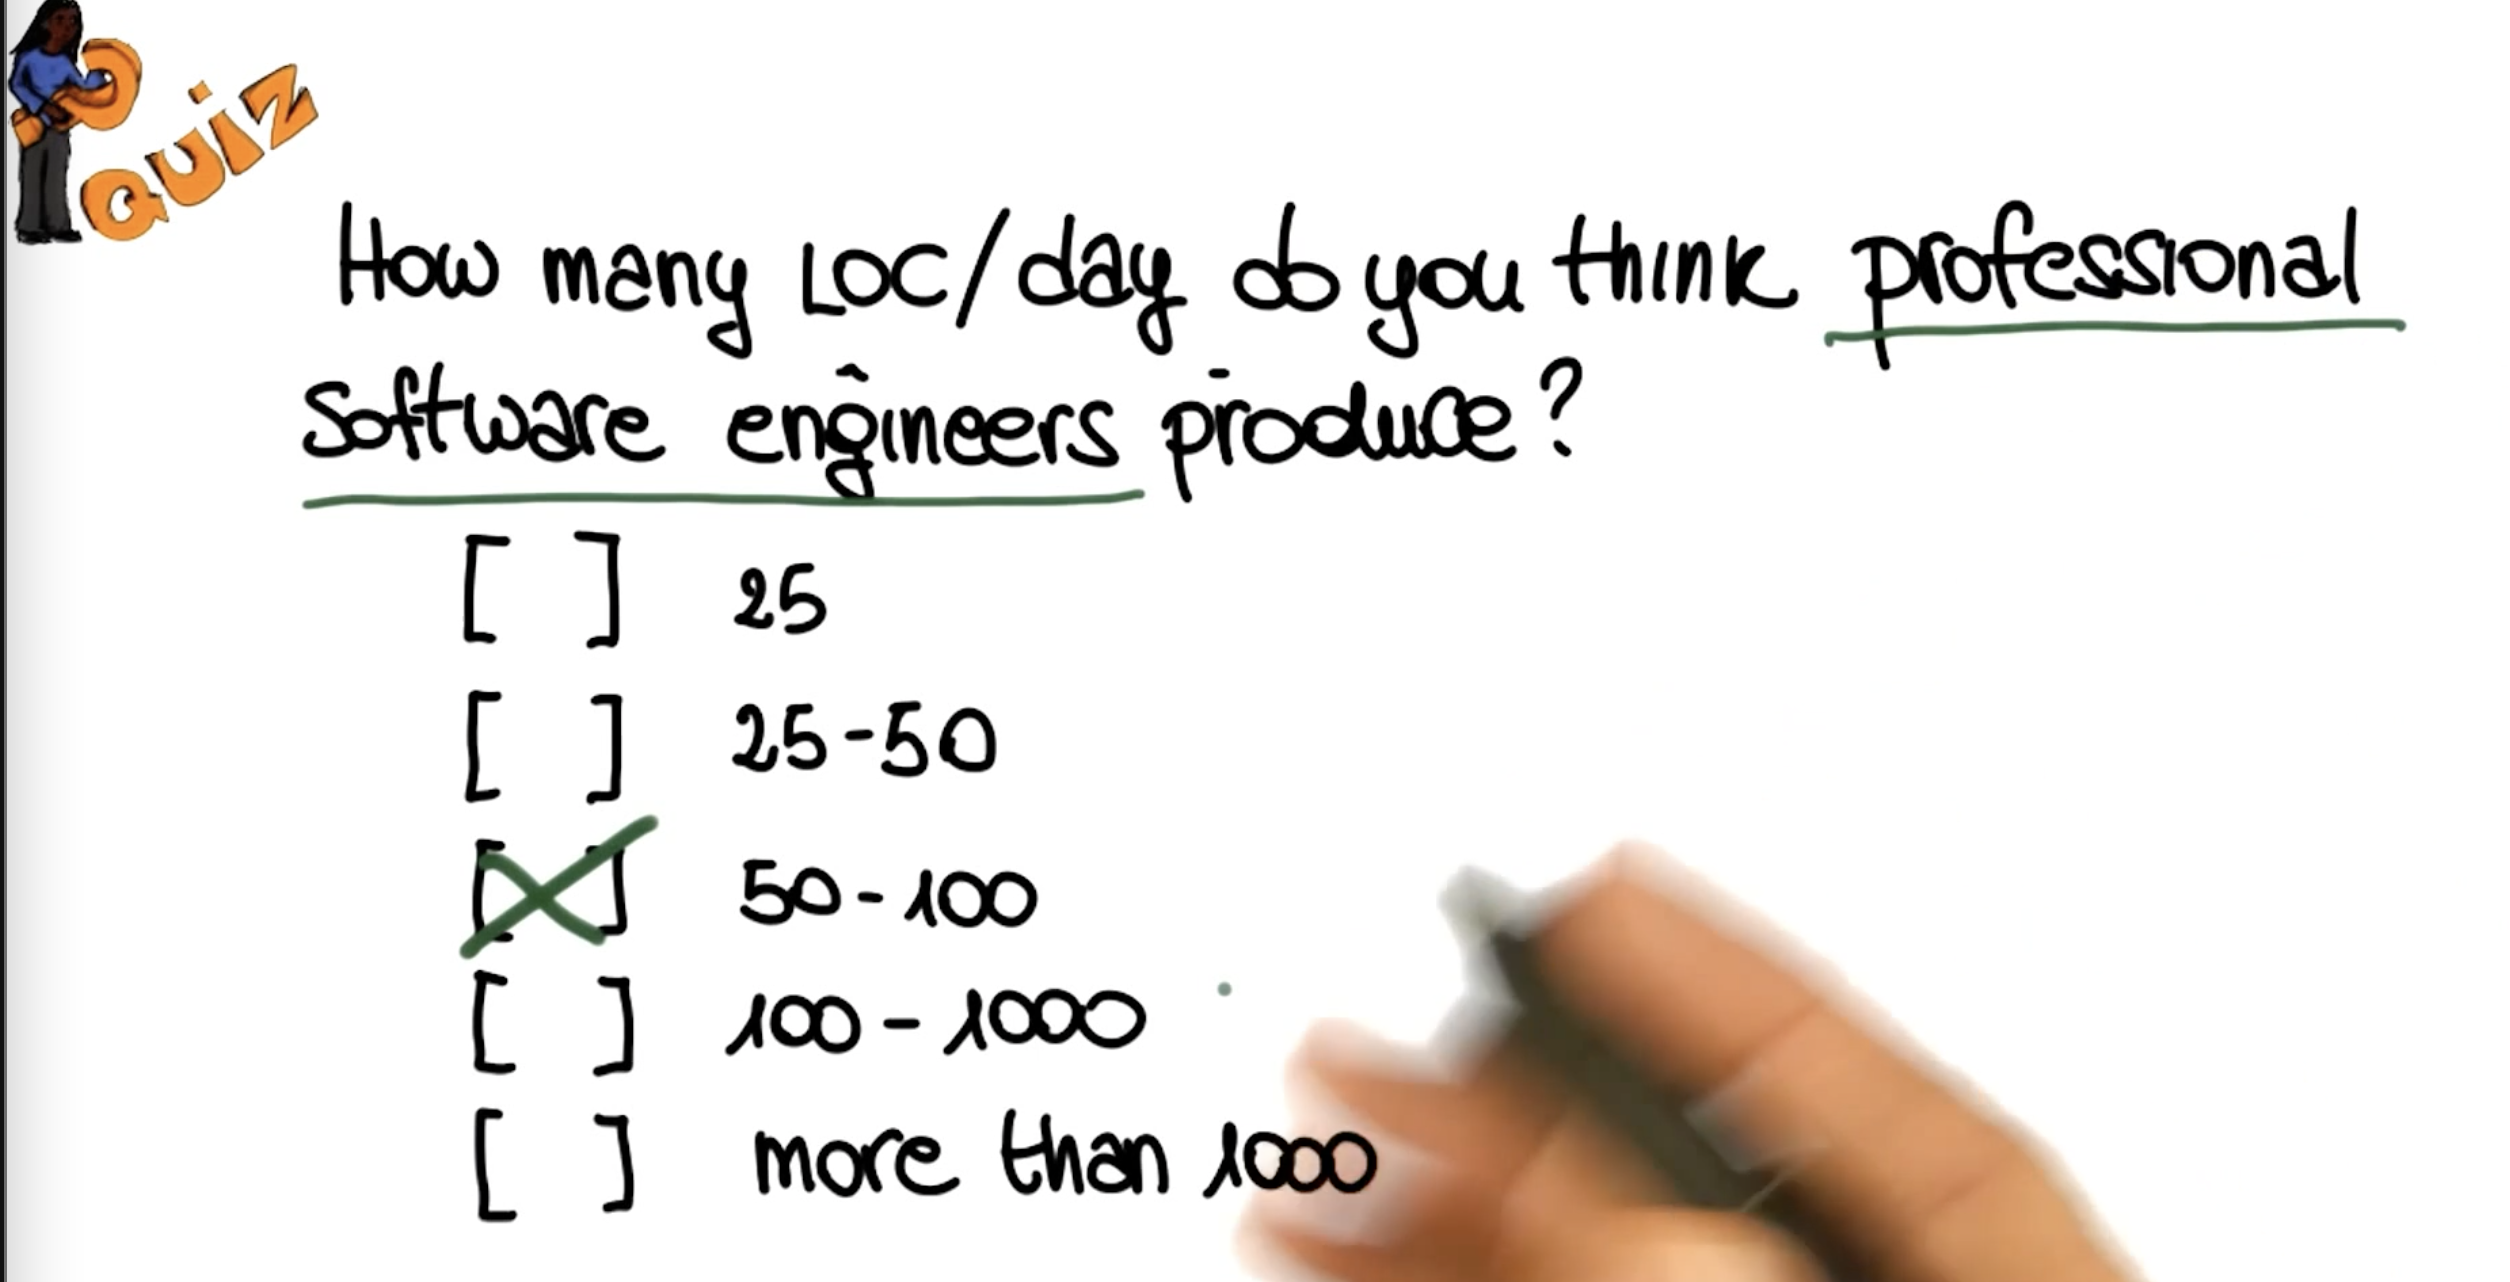 QUIZ
How many LOC/day do you think professional
software engineers produce?
[ ] 25
[ ] 25-50
[X] 50-100
[ ] 100-1000
[ ] more than 1000